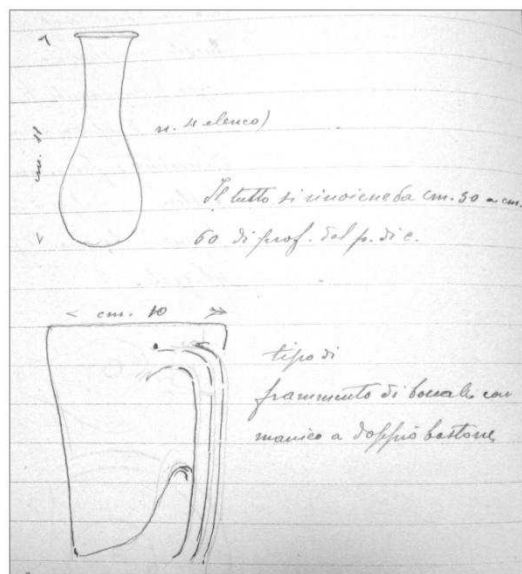 cm. 11
n. 4 elenco)
Il tutto si rinviene da cm. 50 a cm.
60 di prof. dal p. di c.
< cm. 10 >
tipo di
frammento di boccale con
manico a doppio bastone